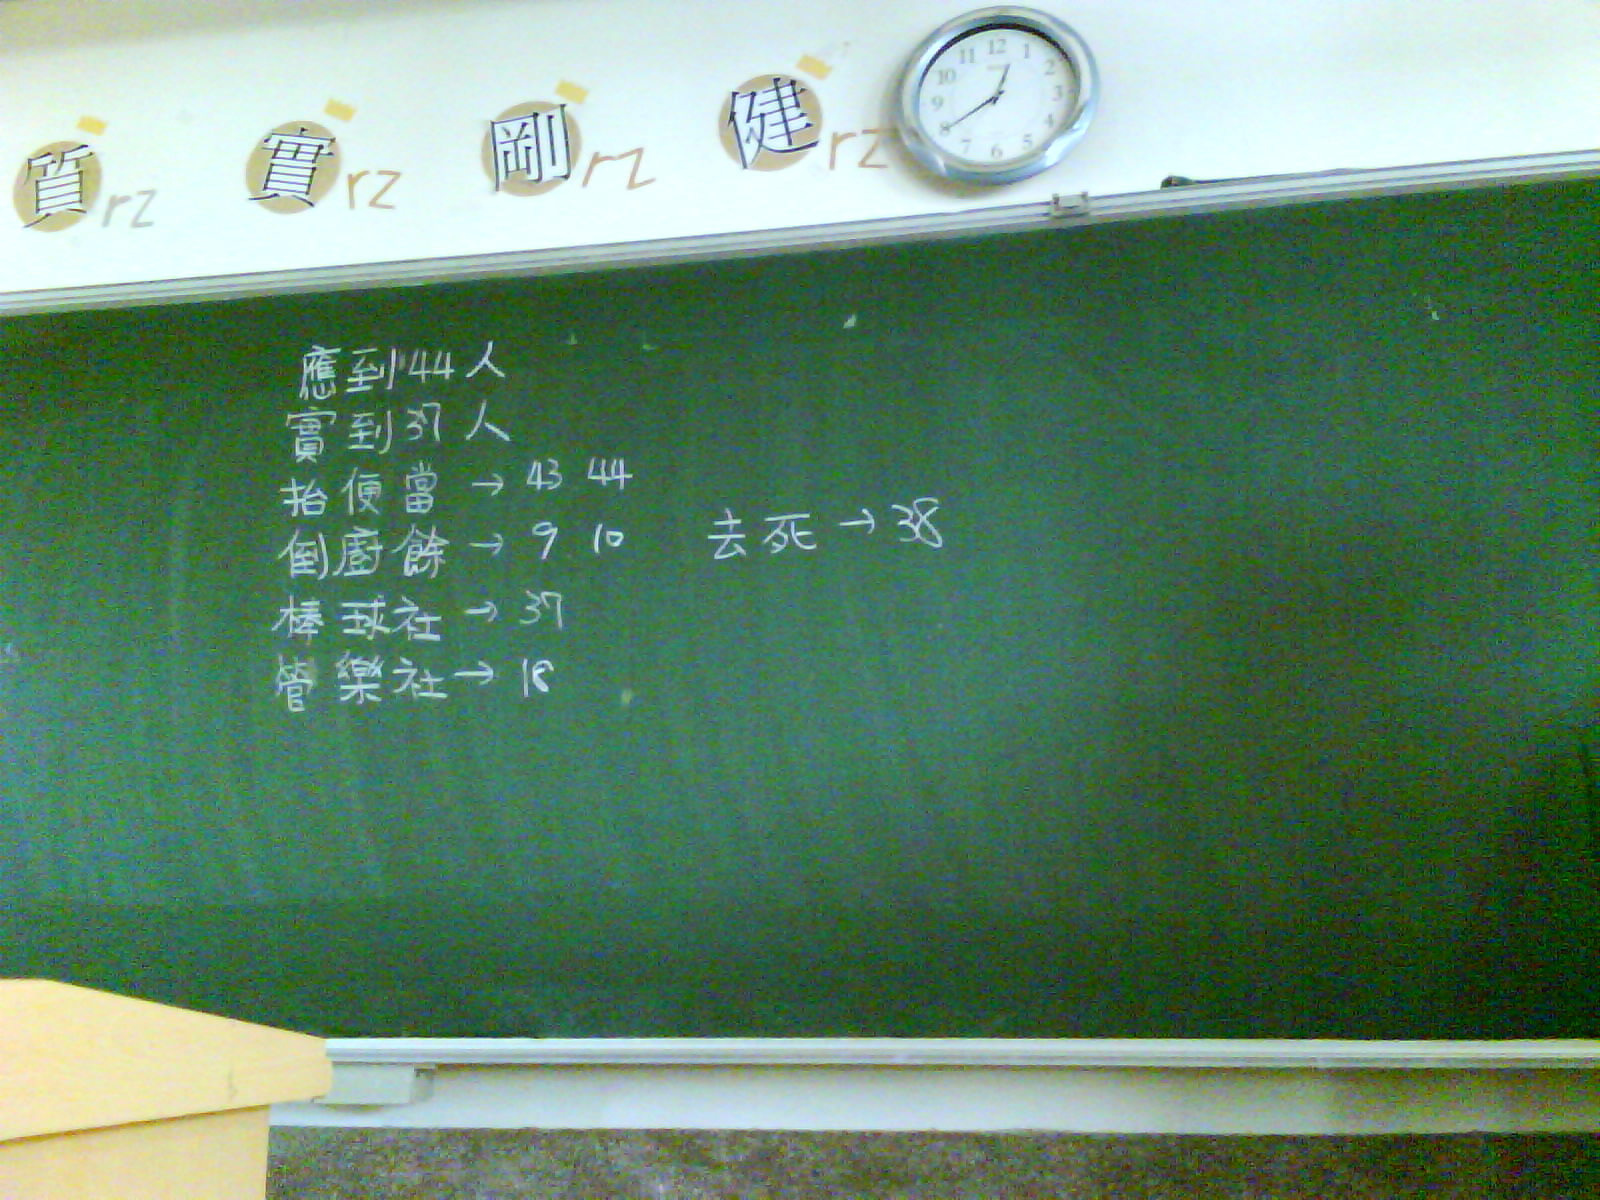 質rz 實rz 剛rz 健rz
12 1 2 3 4 5 6 7 8 9 10 11
應到44人
實到37人
抬便當→43 44
倒廚餘→9 10 去死→38
棒球社→37
管樂社→18